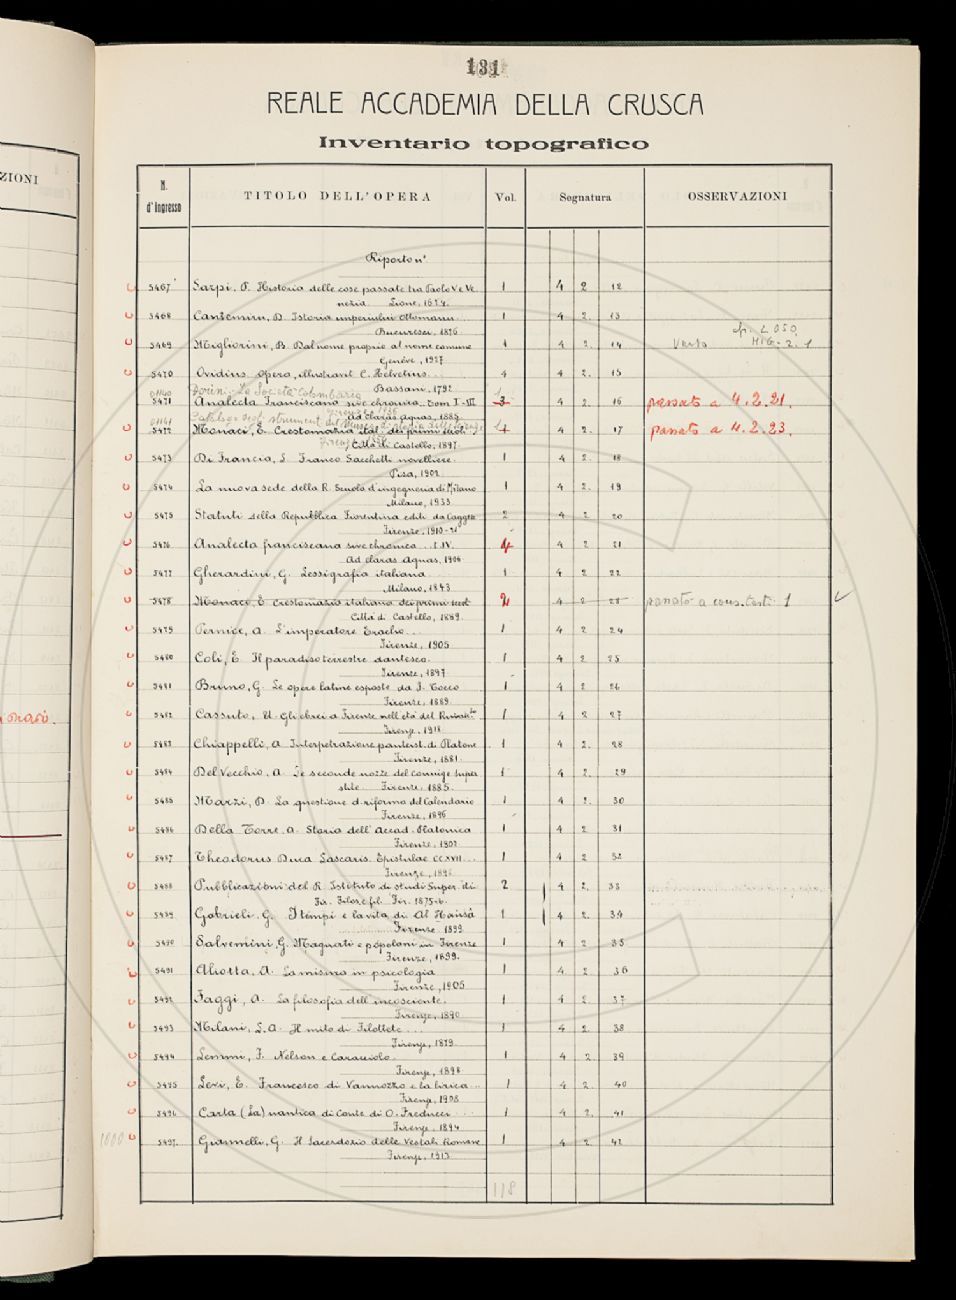 131
REALE ACCADEMIA DELLA CRUSCA
Inventario topografico
ZIONI
N. d'ingresso TITOLO DELL'OPERA Vol. Segnatura OSSERVAZIONI
Riporto n°
5467 Sarpi, P. Historia delle cose passate tra Paolo V e Ve 1 4 2 12
nezia. Lione, 1624.
5468 Cantemiru, D. Istoria imperiului Ottomanu... 1 4 2. 13
Bucuresci, 1876 cfr. 2050
5469 Migliorini, B. Dal nome proprio al nome comune 1 4 2. 14 MIG. 2. 1
Genève, 1927
5470 Ovidius opera, illustravit C. Helvetius... 4 4 2. 15
Bassani, 1792
Dorini: La Società Colombaria
5471 Analecta Franciscana sive chronica. Tom I-III 3 4 2. 16 passato a 4.2.21.
Ad Claras Aquas, 1885
5472 Monaci, E. Crestomazia ital. dei primi secoli 4 2. 17 passato a 4.2.23.
Città di Castello, 1897.
5473 Di Francia, L. Franco Sacchetti novelliere. 1 4 2. 18
Pisa, 1902
5474 La nuova sede della R. Scuola d'ingegneria di Milano 1 4 2. 19
Milano, 1933
5475 Statuti della Repubblica Fiorentina editi da Caggese 2 4 2. 20
Firenze, 1910-21
5476 Analecta franciscana sive chronica... I-IV. 4 4 2. 21
Ad Claras Aquas, 1906
5477 Gherardini, G. Lessigrafia italiana 1 4 2 22
Milano, 1843
5478 Monaco, E. Crestomazia italiana dei primi secoli 2 4 2 23 passato a cons. testi 1
Città di Castello, 1889.
5479 Pernice, A. L'imperatore Eraclio... 1 4 2 24
Firenze, 1905
5480 Coli, E. Il paradiso terrestre dantesco. 1 4 2 25
Firenze, 1897.
5481 Bruno, G. Le opere latine esposte da F. Tocco 1 4 2 26
Firenze, 1889.
5482 Cassuto, U. Gli ebrei a Firenze nell'età del Rinasc.to 1 4 2 27
Firenze, 1918
5483 Chiappelli, A. Interpretazione panteist. di Platone 1 4 2. 28
Firenze, 1881.
5484 Del Vecchio, A. Le seconde nozze del coniuge super 1 4 2. 29
stite. Firenze, 1885.
5485 Marzi, D. La questione d. riforma del Calendario 1 4 2. 30
Firenze, 1896
5486 Della Torre, A. Storia dell'Accad. Platonica 1 4 2. 31
Firenze, 1902
5487 Theodorus Duca Lascaris. Epistulae CCXVII... 1 4 2. 32
Firenze, 1898
5488 Pubblicazioni del R. Istituto di studi Super. di 2 4 2. 33
Fir. Filos. e fil. Fir. 1875-6.
5489 Gabrieli, G. I tempi e la vita di Al Hansâ 1 4 2. 34
Firenze 1899
5490 Salvemini, G. Magnati e popolani in Firenze 1 4 2 35
Firenze, 1899.
5491 Aliotta, A. La misura in psicologia 1 4 2 36
Firenze, 1905
5492 Faggi, A. La filosofia dell'incosciente. 1 4 2. 37
Firenze, 1890
5493 Milani, L.A. Il mito di Filottete... 1 4 2. 38
Firenze, 1879.
5494 Lemmi, F. Nelson e Caracciolo. 1 4 2 39
Firenze, 1898
5495 Levi, E. Francesco di Vannozzo e la lirica... 1 4 2. 40
Firenze, 1908
5496 Carta (La) nautica di Conte di O. Freducci... 1 4 2. 41
Firenze, 1894
1000 5497. Giannelli, G. Il Sacerdozio delle Vestali Romane 1 4 2. 42
Firenze, 1913
118